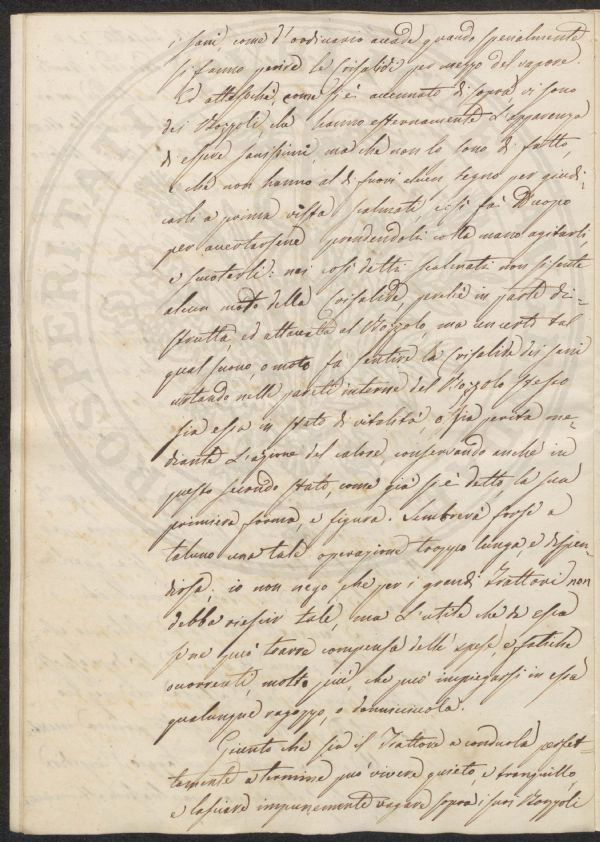 i sani, come d'ordinario accade quando specialmente
si fanno perire le Crisalidi per mezzo del vapore.
Ed attesochè, come si è accennato di sopra vi sono
dei Bozzoli, che hanno esternamente l'apparenza
di essere sanissimi, ma che non lo sono di fatto,
e che non hanno al di fuori alcun segno per giudi-
carli a prima vista scalmati, così fa Duopo
per accertarsene prendendoli colla mano agitarli,
e scuoterli: nei così detti scalmati non si sente
alcun moto della Crisalide, perchè in parte di-
strutta, ed attaccata al Bozzolo, ma un certo tal
qual suono, o moto fà sentire la Crisalide dei sani
urtando nelle pareti interne del Bozzolo stesso
sia essa in stato di vitalità, o sia perita me-
diante l'azione del calore, conservando anche in
questo secondo stato, come già si è detto, la sua
primiera forma, e figura. Sembrerà forse a
taluno una tale operazione troppo lunga, e dispen-
diosa; io non nego che per i grandi Trattori non
debba riescir tale, ma l'utile che da essa
se ne può trarre compensa delle spese, e fatiche
occorrenti, molto più, che può impiegarsi in essa
qualunque ragazzo, o donnicciuola.
Giunto che sia il Trattore a condurla perfet-
tamente a termine può vivere quieto, e tranquillo,
e lasciare impunemente vagare sopra i suoi Bozzoli
PROSPERITATI